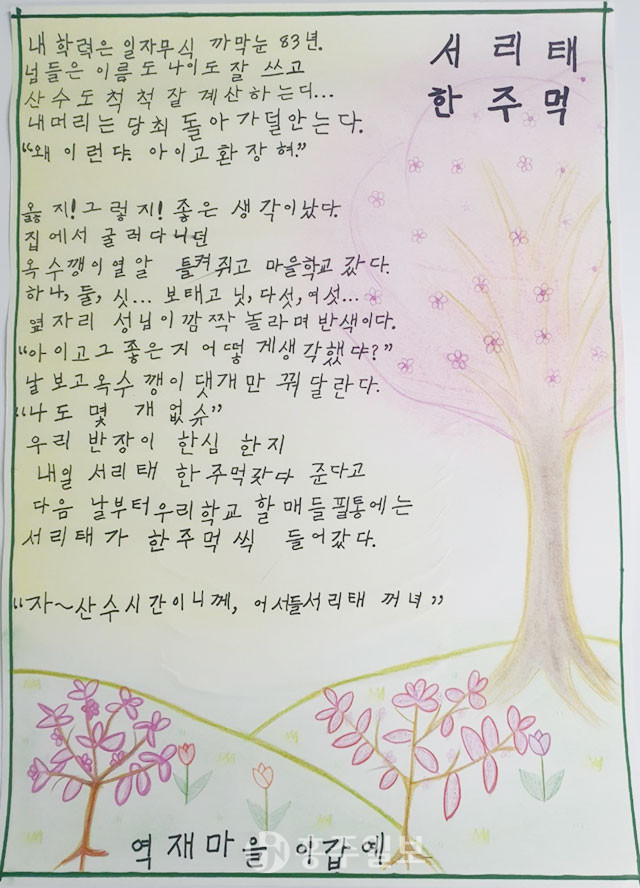 서리태
한주먹
내 학력은 일자무식 까막눈 83년.
넘들은 이름도 나이도 잘 쓰고
산수도 척척 잘 계산하는디...
내머리는 당최 돌아가덜안는다.
“왜 이런댜. 아이고 환장혀.”
옳지! 그렇지! 좋은 생각이났다.
집에서 굴러다니던
옥수깽이열알 틀켜쥐고 마을학교 갔다.
하나, 둘, 싯... 보태고 닛, 다섯, 여섯...
옆자리 성님이깜짝 놀라며 반색이다.
“아이고 그 좋은 지 어떻게생각했댜?”
날 보고 옥수깽이 댓개만 꿔달란다.
“나도 몇 개 없슈”
우리 반장이 한심 한지
내일 서리태 한주먹갖다 준다고
다음 날부터 우리학교 할매들필통에는
서리태가 한주먹씩 들어갔다.
“자~산수시간이니께, 어서들서리태 꺼녀”
역재마을 이갑예
홍주일보